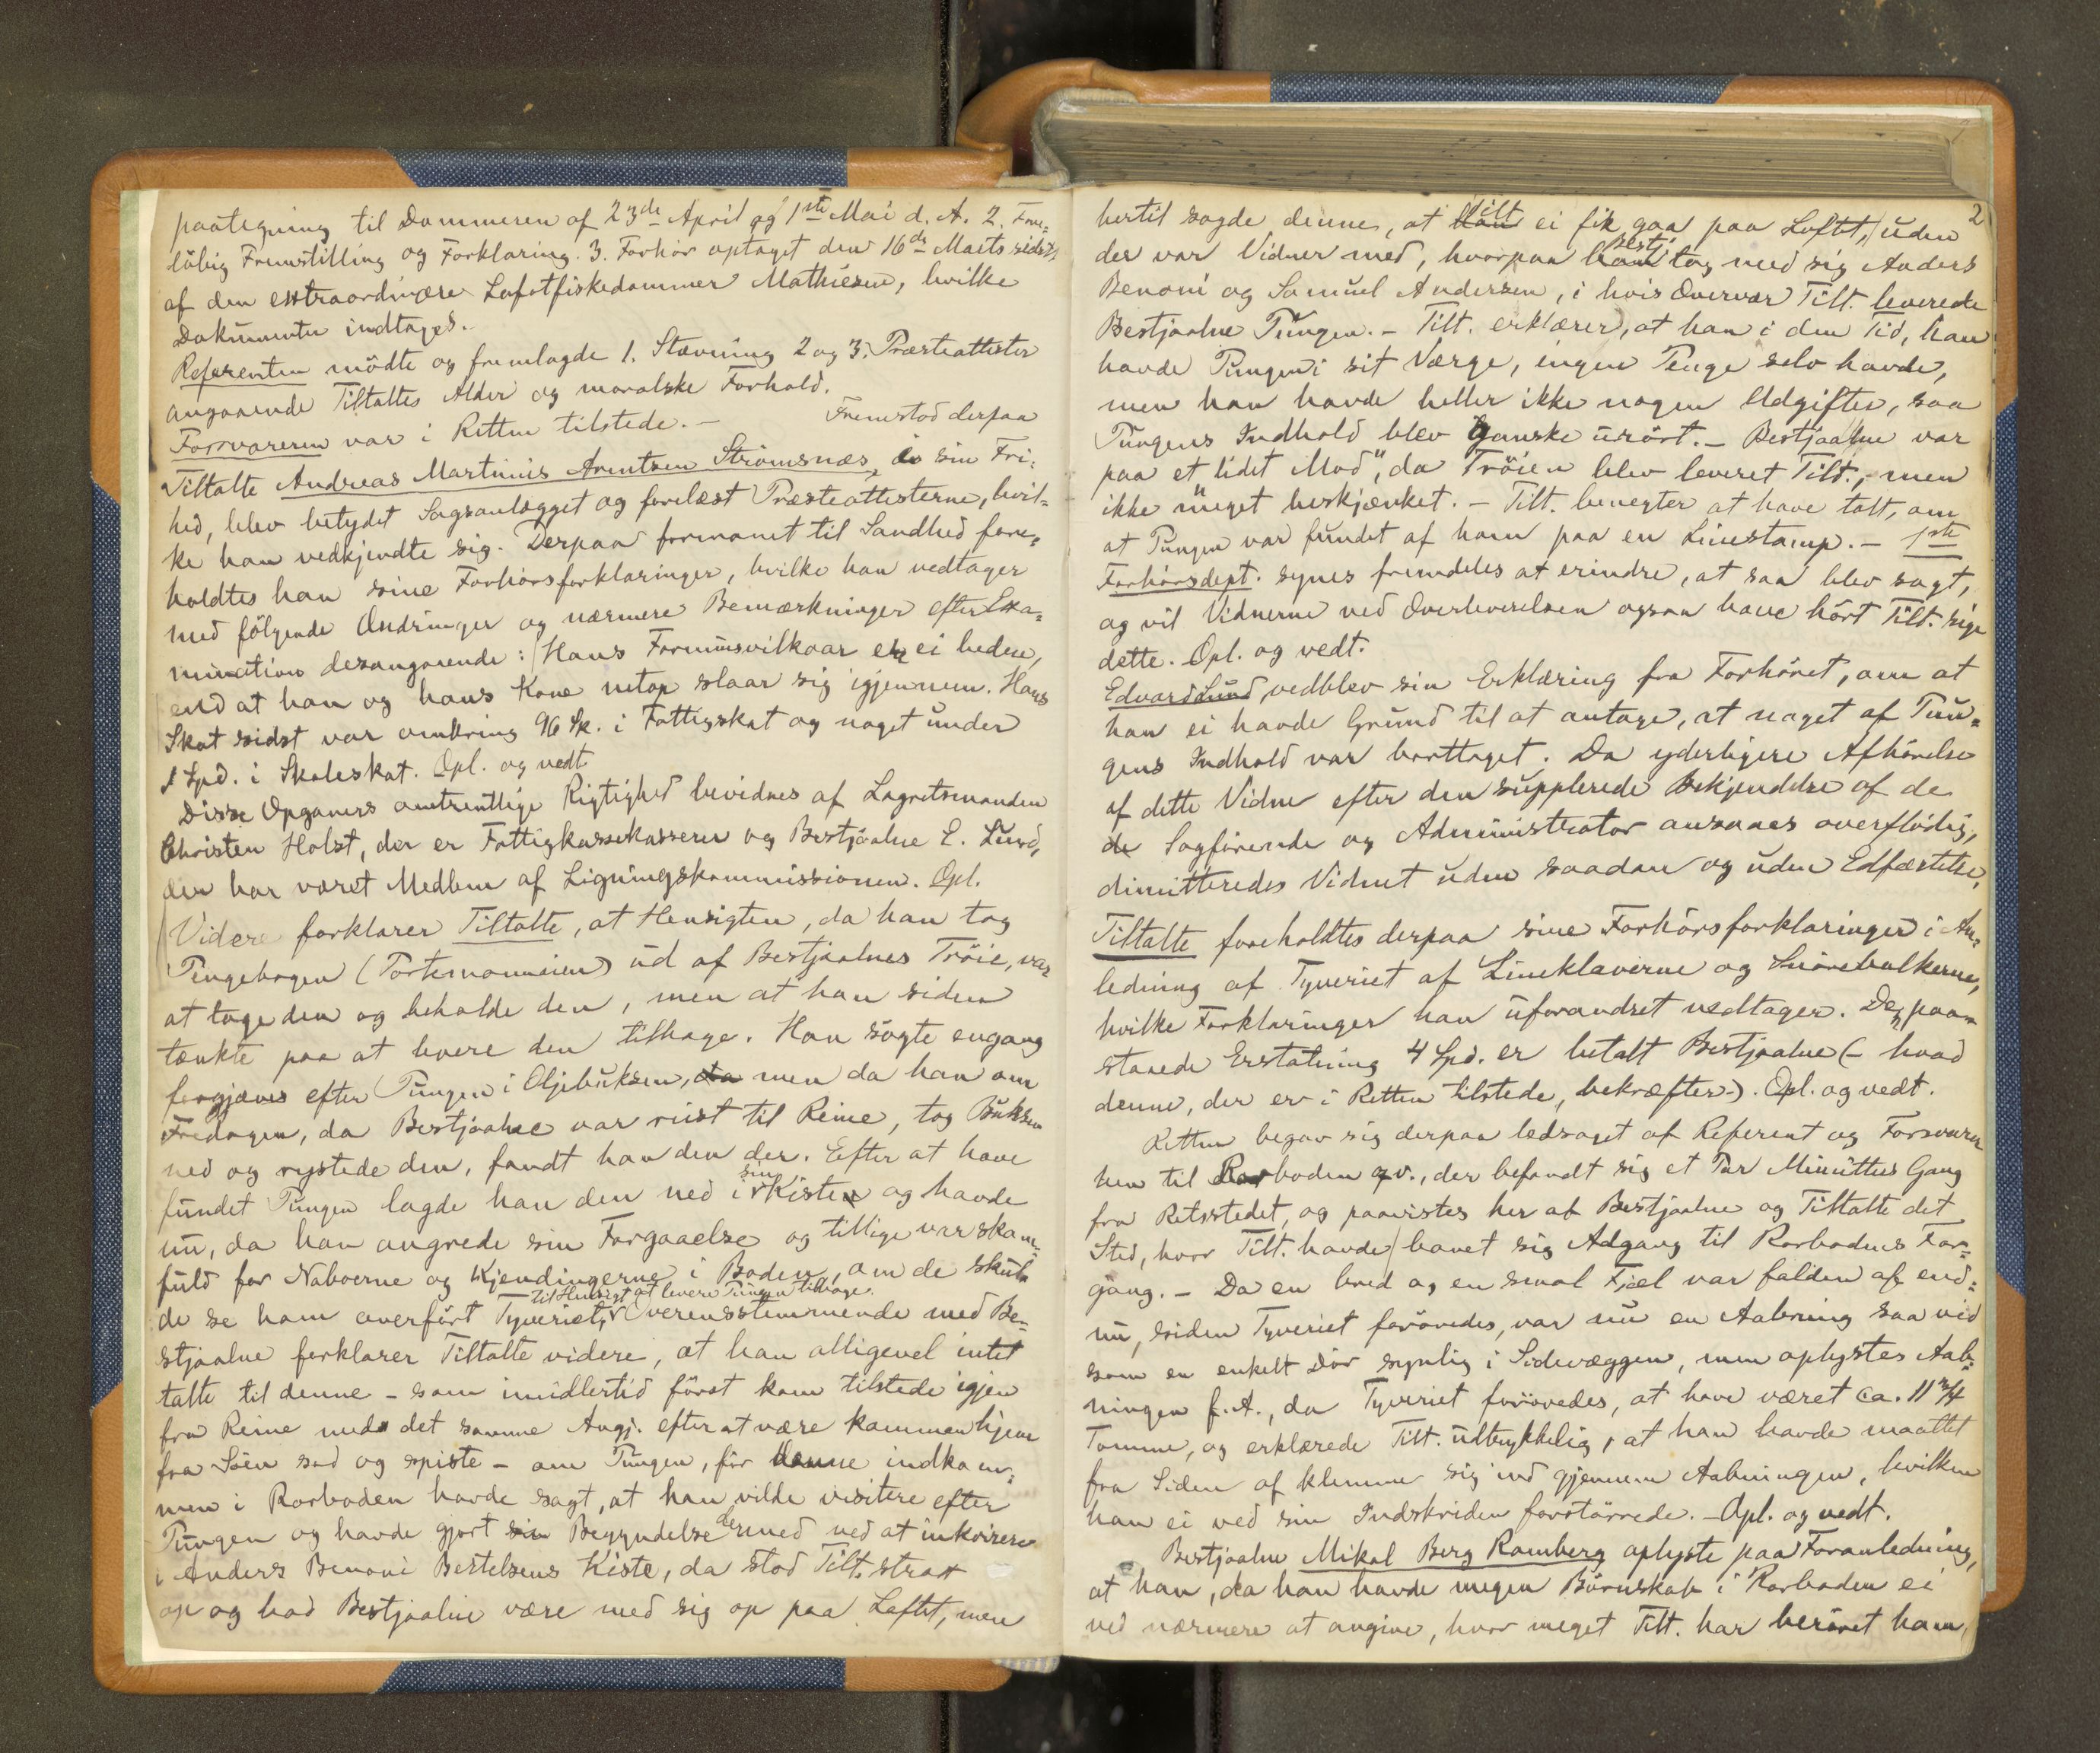 paategning til Dommeren af 23de April og 1ste Mai d. A. 2. Fore-
löbig Fremstilling og Forklaring. 3. Forhör optaget den 16de Marts sidstl.
af den extraordinære Lofotfiskedommer Mathiesen, hvilke
Dokumenter indtages.
Referenten mödte og fremlagde 1. Stævning 2 og 3. Præsteattester
angaaende Tiltaltes Alder og moralske Forhold.
Forsvareren var i Retten tilstede. – Fremstod derpaa
Tiltalte Andreas Martinus Arentsen Strömsnæs, i sin Fri-
hed, blev betydet Sagsanlægget og forelæst Præsteattesterne, hvil-
ke han vedkjendte sig. Derpaa formanet til Sandhed fore-
holdtes han sine Forhörsforklaringer, hvilke han vedtager
med fölgende Ændringer og nærmere Bemærkninger efter Exa-
mination desangaaende: Hans Formuesvilkaar er ei bedre,
end at han og hans Kone netop slaar sig igjennem. Hans
Skat sidst var omkring 96 Sk. i Fattigskat og noget under
1 Spd. i Skoleskat. Opl. og vedt.
Disse Opgavers omtrentlige Rigtighed bevidnes af Lagretsmanden
Christen Holst, der er Fattigkassekasserer og Bestjaalne E. Lund,
der har været Medlem af Ligningskommissionen. Opl.
Videre forklarer Tiltalte, at Hensigten, da han tog
Pengebogen (Portemonnaien) ud af Bestjaalnes Tröie, var
at tage den og beholde den, men at han siden
tænkte paa at levere den tilbage. Han sögte engang
forgjæves efter Pungen i Oljebuksen, da men da han om
Fredagen, da Bestjaalne var reist til Reine, tog Buksen
ned og rystede den, fandt han den der. Efter at have
fundet Pungen lagde han den ned i sin Kiste og havde
nu, da han angrede sin Forgaaelse og tillige var skam-
fuld for Naboerne og Kjendingerne i Boden, om de skul-
de se ham overfört Tyveriet, til Hensigt at levere Pungen tilbage. Overensstemmende med Be-
stjaalne forklarer Tiltalte videre, at han alligevel intet
talte til denne – som imidlertid först kom tilstede igjen
fra Reine med det samme Angj. efter at være kommen hjem
fra Söen sad og spiste – om Pungen, för denne indkom-
men i Rorboden havde sagt, at han vilde visitere efter
Pungen og havde gjort sin Begyndelse dermed ved at inkvirere
i Anders Benoni Bertelsens Kiste, da stod Tilt. strax
op og bad Bestjaalne være med sig op paa Loftet, men
2
hertil sagde denne, at Tilt. ei fik gaa paa Loftet, uden
der var Vidner med, hvorpaa Bestj. tog med sig Anders
Benoni og Samuel Andersen, i hvis Overvær Tilt. leverede
Bestjaalne Pungen. – Tilt. erklærer, at han i den Tid, han
havde Pungen i sit Værge, ingen Penge selv havde,
men han havde heller ikke nogen Udgifter, saa
Pungens Indhold blev ganske urört. – Bestjaalne var
paa et lidet Mod", da Tröien blev leveret Tilt., men
ikke meget beskjænket. – Tilt. benegter at have talt, om
at Pungen var fundet af ham paa en Linestamp. – 1ste
Forhörsdept. synes fremdeles at erindre, at saa blev sagt,
og vil Vidnerne ved Overleverelsen ogsaa have hört Tilt. sige
dette. Opl. og vedt.
Edvard Lund vedblev sin Erklæring fra Forhöret, om at
han ei havde Grund til at antage, at noget af Pun-
gens Indhold var borttaget. Da yderligere Afhörelse
af dette Vidne efter den supplerede Bekjendelse af de
de Sagförende og Administrator ansaaes overflödig,
dimitteredes Vidnet uden saadan og uden Edfæstelse.
Tiltalte foreholdtes derpaa sine Forhörsforklaringer i An-
ledning af Tyveriet af Lineklaverne og Snörebulkerne,
hvilke Forklaringer han uforandret vedtager. Den paa-
staaede Erstatning 4 Spd. er betalt Bestjaalne (– hvad
denne, der er i Retten tilstede, bekræfter –). Opl. og vedt.
Retten begav sig derpaa ledsaget af Referent og Forsvarer
hen til Rorboden qv., der befandt sig et Par Minutters Gang
fra Retsstedet, og paavistes her af Bestjaalne og Tiltalte det
Sted, hvor Tilt. havde banet sig Adgang til Rorbodens For-
gang. – Da en bred og en smal Fjæl var falden af end-
nu, siden Tyveriet forövedes, var nu en Aabning saa vid
som en enkelt Dör synlig i Sidevæggen, men oplystes Aab-
ningen f. A., da Tyveriet forövedes, at have været ca. 11 3/4
Tomme, og erklærede Tilt. udtrykkelig, at han havde maattet
fra Siden af klemme sig ind gjennem Aabningen, hvilken
han ei ved sin Indskriden forstörrede. – Opl. og vedt.
Bestjaalne Mikal Berg Ramberg oplyste paa Foranledning,
at han, da han havde megen Börnskab i Rorboden ei
ved nærmere at angive, hvor meget Tilt. har berövet ham,